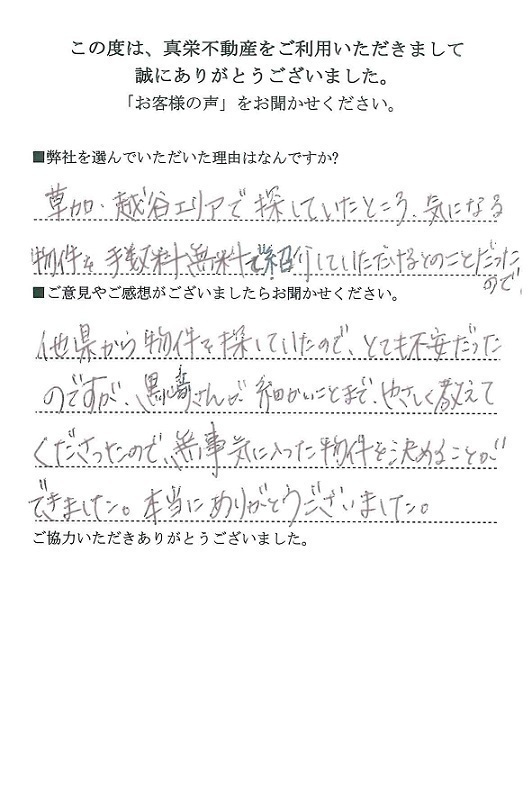 この度は、真栄不動産をご利用いただきまして
誠にありがとうございました。
「お客様の声」をお聞かせください。
■弊社を選んでいただいた理由はなんですか?
草加・越谷エリアで探していたところ、気になる
物件を手数料無料で紹介していただけるとのことだった
ので、
■ご意見やご感想がございましたらお聞かせください。
他県から物件を探していたので、とても不安だった
のですが、黒崎さんが細かいことまで、やさしく教えて
くださったので、無事気に入った物件を決めることが
できました。本当にありがとうございました。
ご協力いただきありがとうございました。